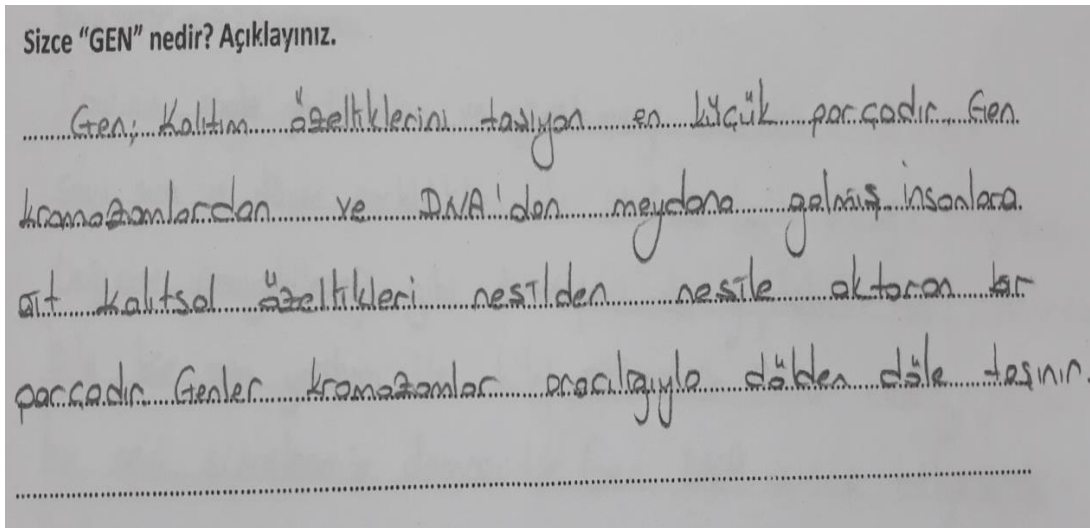 Sizce "GEN" nedir? Açıklayınız.
Gen; Kalıtım özelliklerini taşıyan en küçük parçadır. Gen
kromozomlardan ve DNA'dan meydana gelmiş insanlara
ait kalıtsal özellikleri nesilden nesile aktaran bir
parçadır. Genler kromozomlar aracılığıyla dölden döle taşınır.